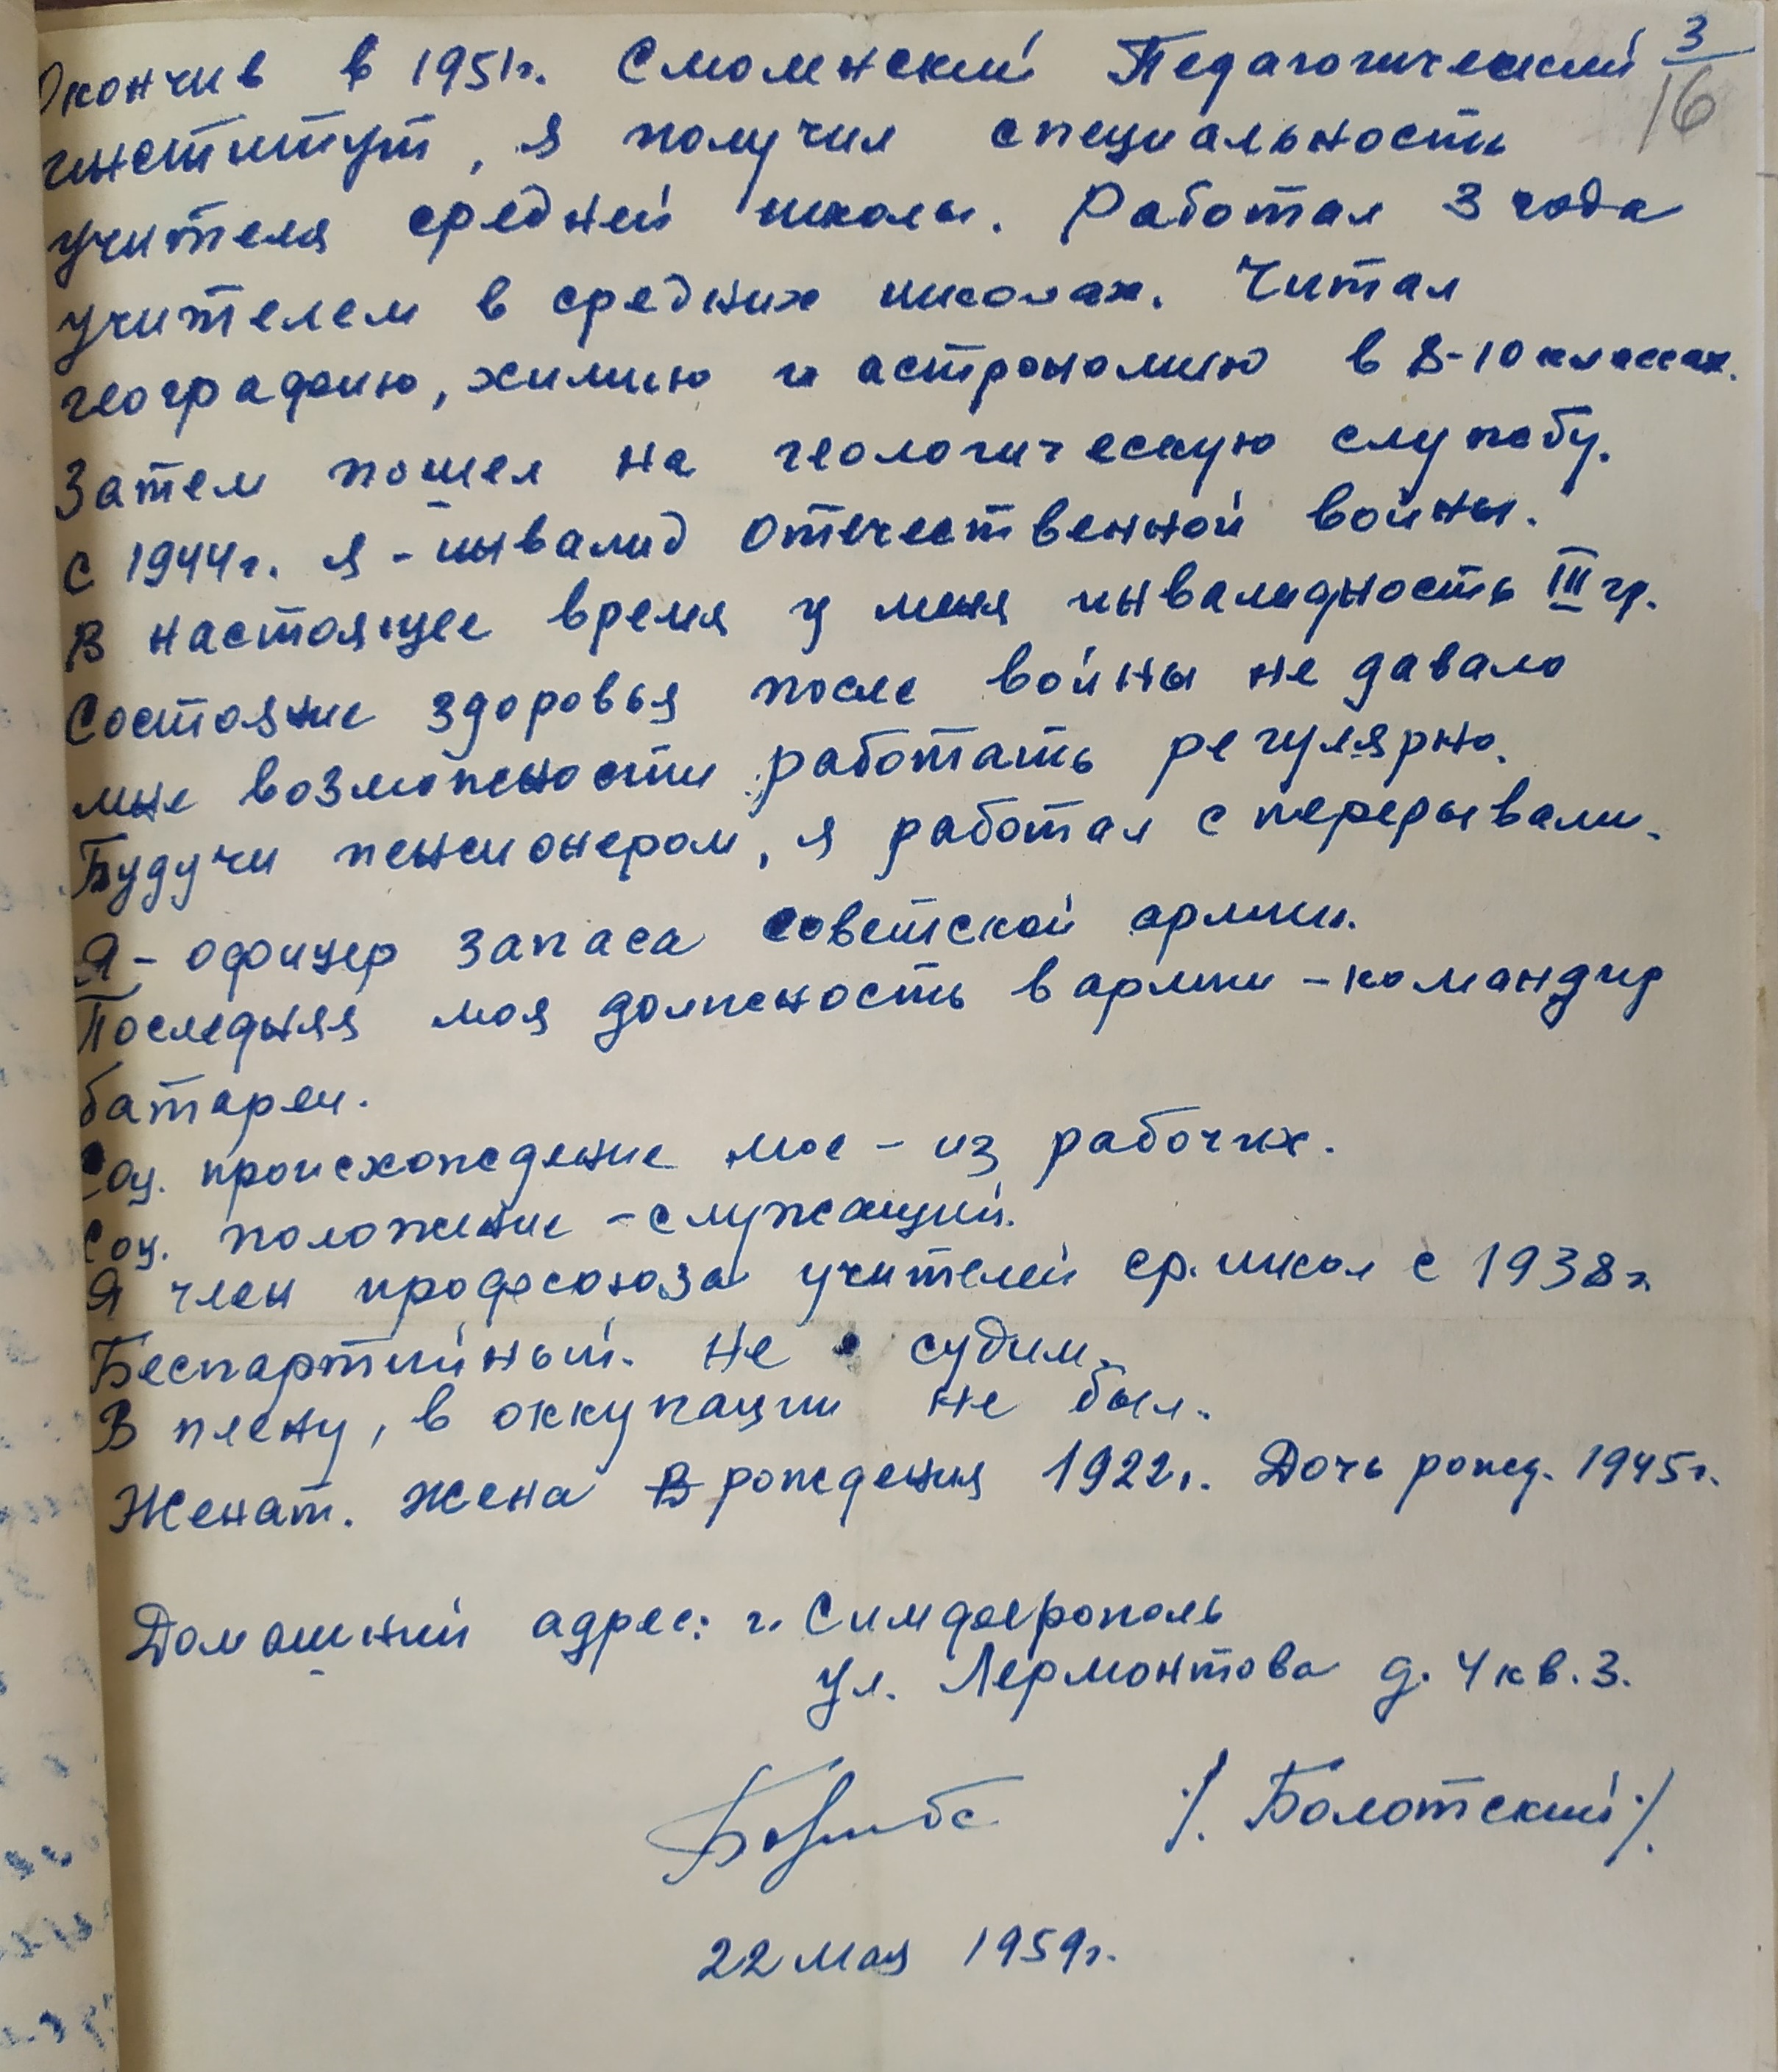 3
16
Окончив в 1951г. Смоленский Педагогический
институт, я получил специальность
учителя средней школы. Работал 3 года
учителем в средних школах. Читал
географию, химию и астрономию в 8-10 классах.
Затем пошел на геологическую службу.
С 1944г. я - инвалид Отечественной войны.
В настоящее время у меня инвалидность III гр.
Состояние здоровья после войны не давало
мне возможности работать регулярно.
Будучи пенсионером, я работал с перерывами.
Я - офицер запаса советской армии.
Последняя моя должность в армии - командир
батареи.
Соц. происхождение мое - из рабочих.
Соц. положение - служащий.
Я член профсоюза учителей ср. школ с 1938г.
Беспартийный. Не судим.
В плену, в оккупации не был.
Женат. Жена рождения 1922г. Дочь рожд. 1945г.
Домашний адрес: г. Симферополь
ул. Лермонтова д. 4 кв. 3.
/. Болотский /.
22 мая 1959г.